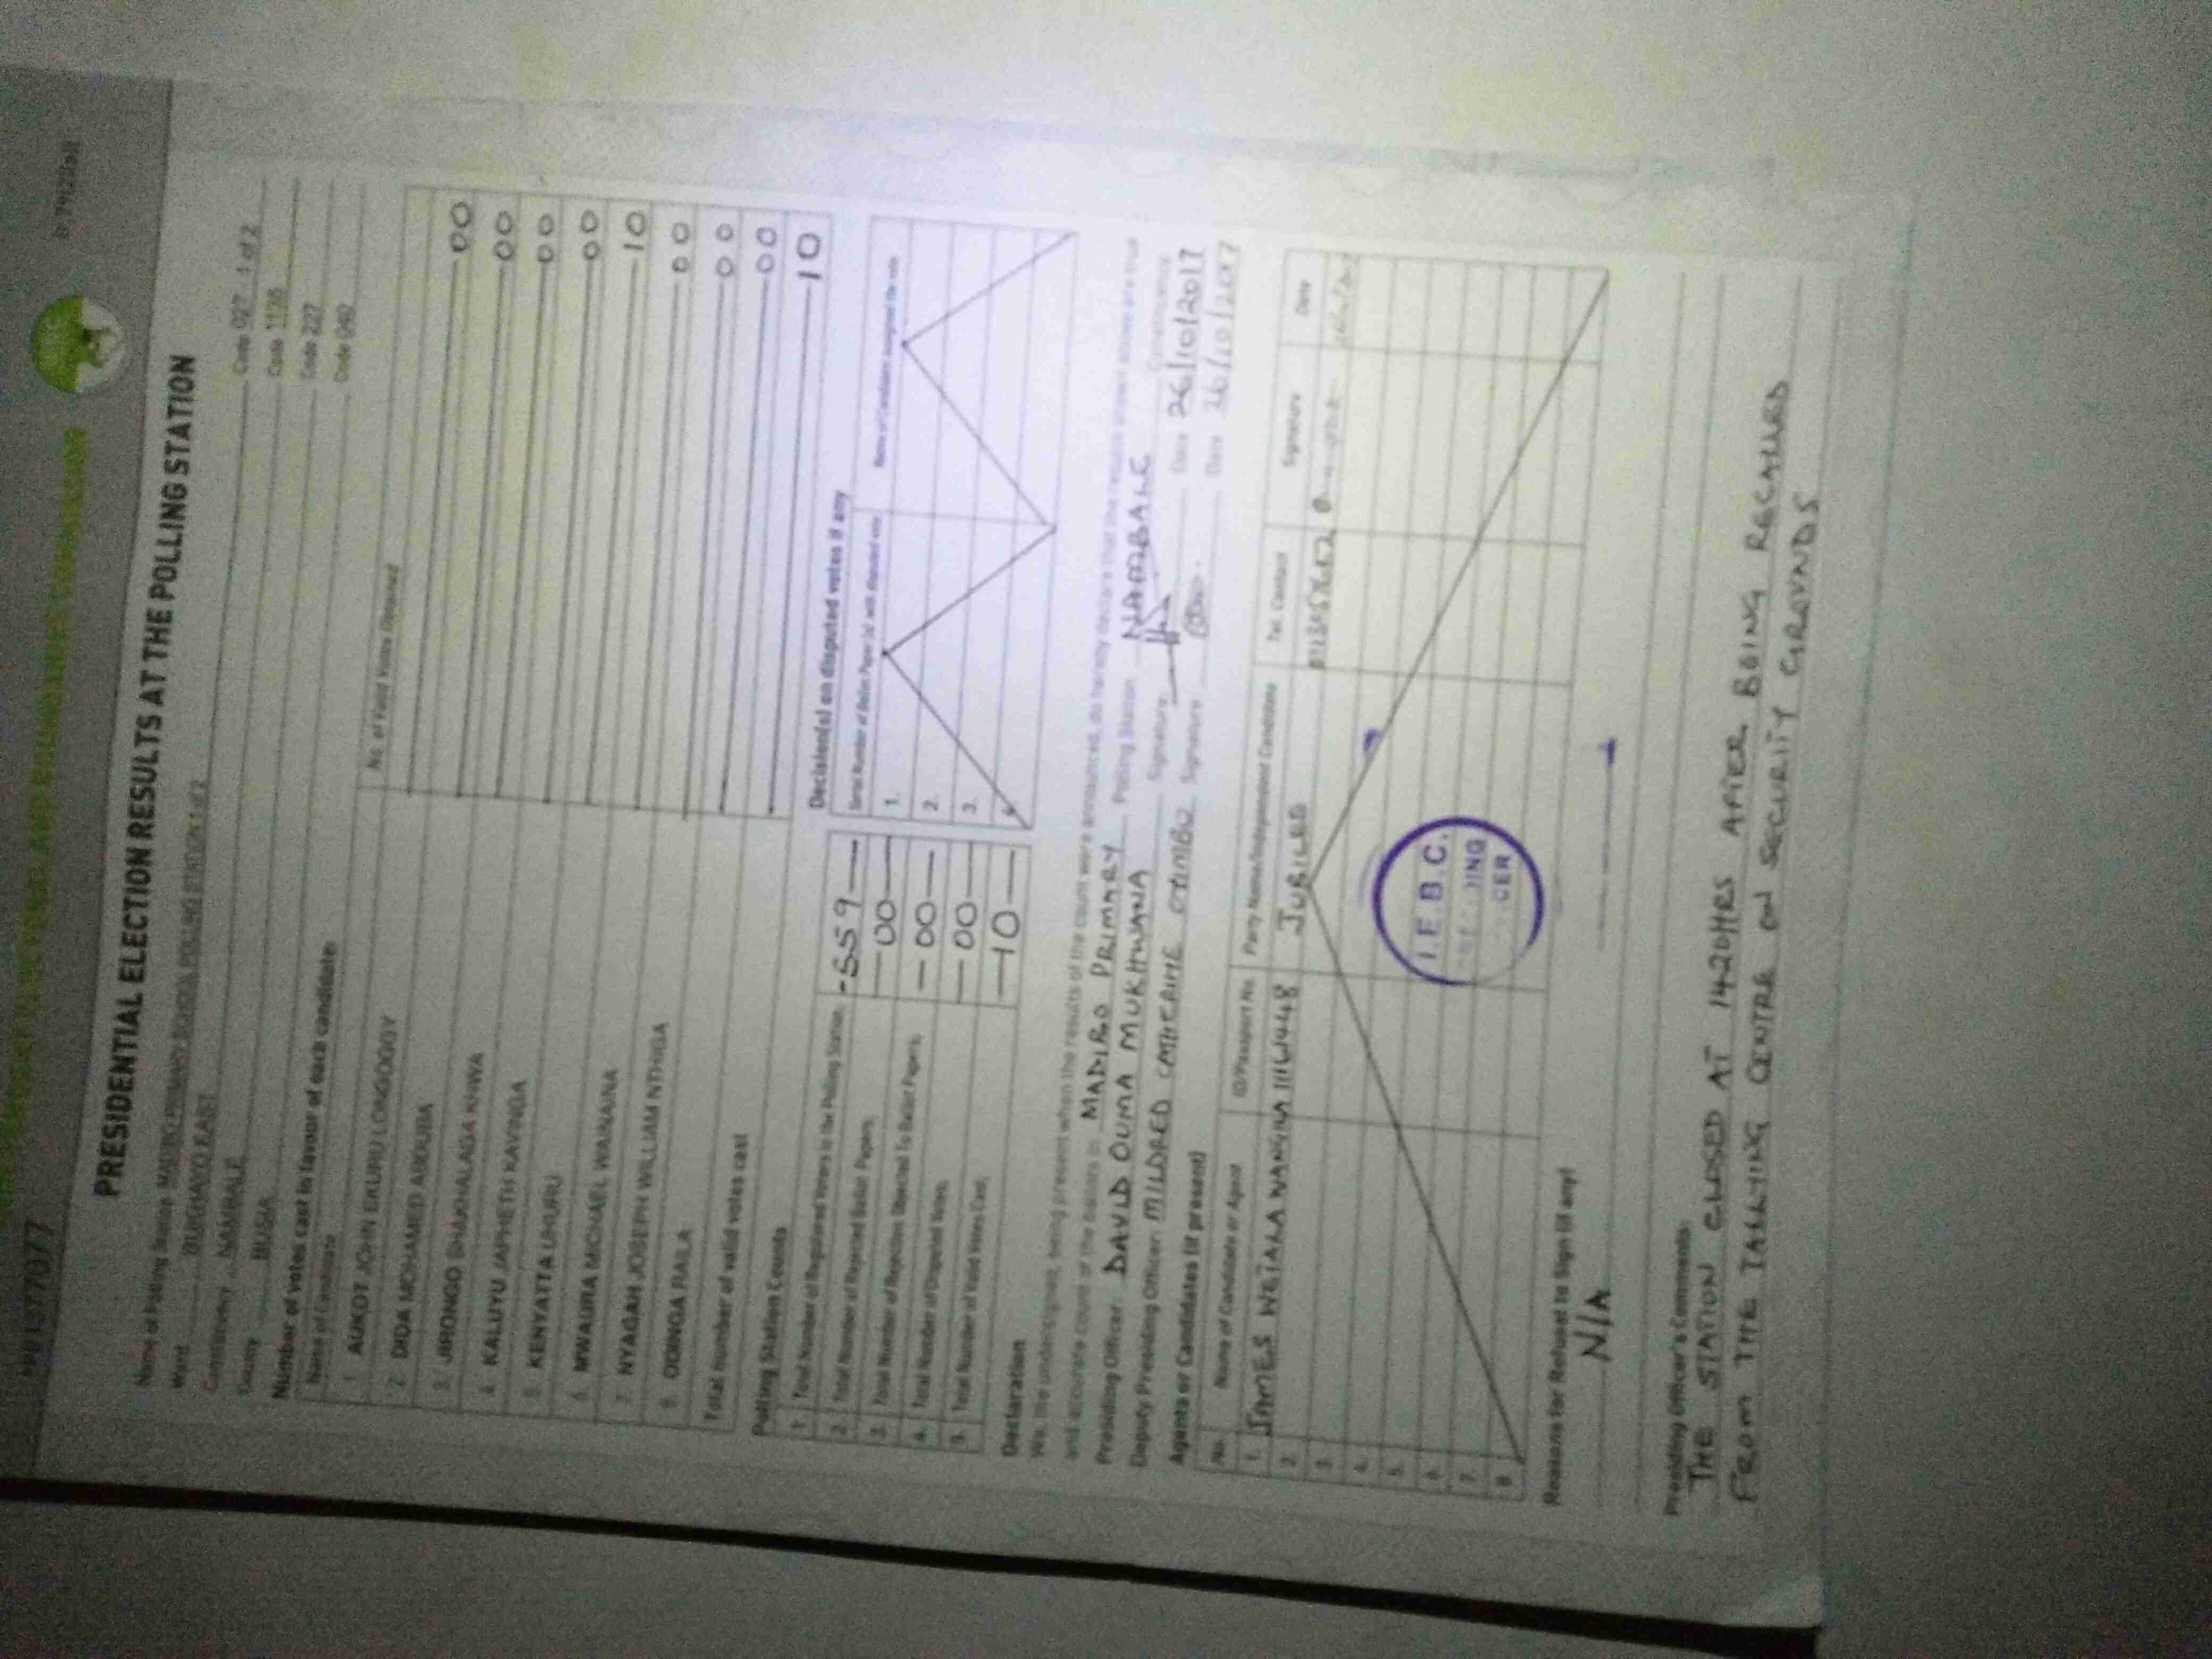 PRESIDENTIAL ELECTION RESULTS AT THE POLLING STATION
Name of Polling Station MADIRO PRIMARY SCHOOL POLLING STATION 1 of 2 Code 027 1 of 2
Ward BUKHAYO EAST Code 1128
Constituency NAMBALE Code 227
County BUSIA Code 040
Number of votes cast in favour of each candidate
Name of Candidate No. of Valid Votes Obtained
1. AUKOT JOHN EKURU LONGOGGY 00
2. DIDA MOHAMED ABDUBA 00
3. JIRONGO SHAKHALAGA KHWA 00
4. KALUYU JAPHETH KAVINGA 00
5. KENYATTA UHURU 10
6. MWAURA MICHAEL WAINAINA 00
7. NYAGAH JOSEPH WILLIAM NTHIGA 00
8. ODINGA RAILA 00
Total number of valid votes cast 10
Polling Station Counts
1. Total Number of Registered Voters in the Polling Station 559
2. Total Number of Rejected Ballot Papers 00
3. Total Number of Rejection Objected To Ballot Papers 00
4. Total Number of Disputed Votes 00
5. Total Number of Valid Votes Cast 10
Decision(s) on disputed votes if any
Serial Number of Ballot Paper (s) with disputed vote Name of Candidate assigned the vote
1.
2.
3.
Declaration
We, the undersigned, being present when the results of the count were announced, do hereby declare that the results shown above are true
and accurate count of the ballots in MADIRO PRIMARY Polling Station NAMBALE Constituency
Presiding Officer DAVID OUMA MUKHWANA Signature Date 26/10/2017
Deputy Presiding Officer MILDRED CATHERINE Signature Date 26/10/2017
Agents or Candidates (if present)
No. Name of Candidate or Agent ID/Passport No. Party Name/Independent Candidate Tel. Contact Signature Date
1. JAMES WETALA NANGINA 11161448 JUBILEE
2.
3.
4.
5.
6.
7.
8.
I.E.B.C.
Reasons for Refusal to Sign (if any)
N/A
Presiding Officer's Comments
THE STATION CLOSED AT 1420HRS AFTER BEING RECALLED
FROM THE TALLYING CENTRE ON SECURITY GROUNDS